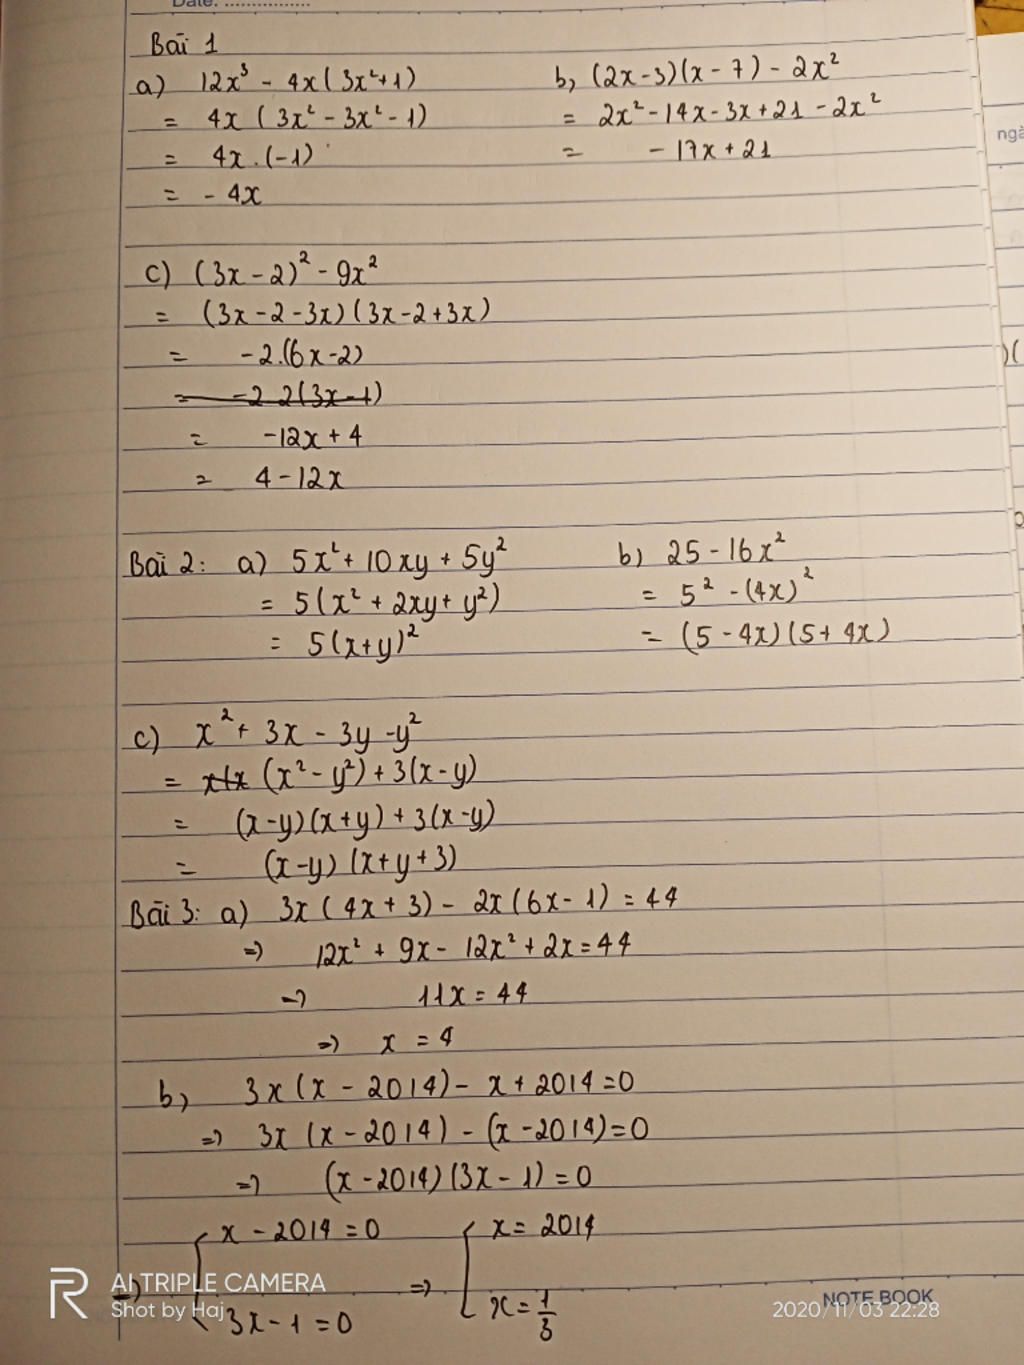 Date: ................
Bài 1
a) 12x³ - 4x(3x²+1)
= 4x (3x² - 3x² - 1)
= 4x . (-1)
= - 4x
b, (2x-3)(x-7) - 2x²
= 2x² - 14x - 3x + 21 - 2x²
= - 17x + 21
ngà
c) (3x - 2)² - 9x²
= (3x - 2 - 3x)(3x - 2 + 3x)
= -2.(6x - 2)
= -2 2(3x - 1)
= -12x + 4
= 4 - 12x
)(
Bài 2: a) 5x² + 10xy + 5y²
= 5(x² + 2xy + y²)
= 5(x+y)²
b) 25 - 16x²
= 5² - (4x)²
= (5 - 4x)(5 + 4x)
c) x² + 3x - 3y - y²
= x(x (x² - y²) + 3(x - y)
= (x-y)(x+y) + 3(x-y)
= (x-y) (x+y+3)
Bài 3: a) 3x (4x + 3) - 2x (6x - 1) = 44
=> 12x² + 9x - 12x² + 2x = 44
=> 11x = 44
=> x = 4
b, 3x (x - 2014) - x + 2014 = 0
=> 3x (x - 2014) - (x - 2014) = 0
=> (x - 2014) (3x - 1) = 0
=> [ x - 2014 = 0 => [ x = 2014
3x - 1 = 0 x = 1/3
AI TRIPLE CAMERA
Shot by Haj
NOTE BOOK
2020/11/03 22:28